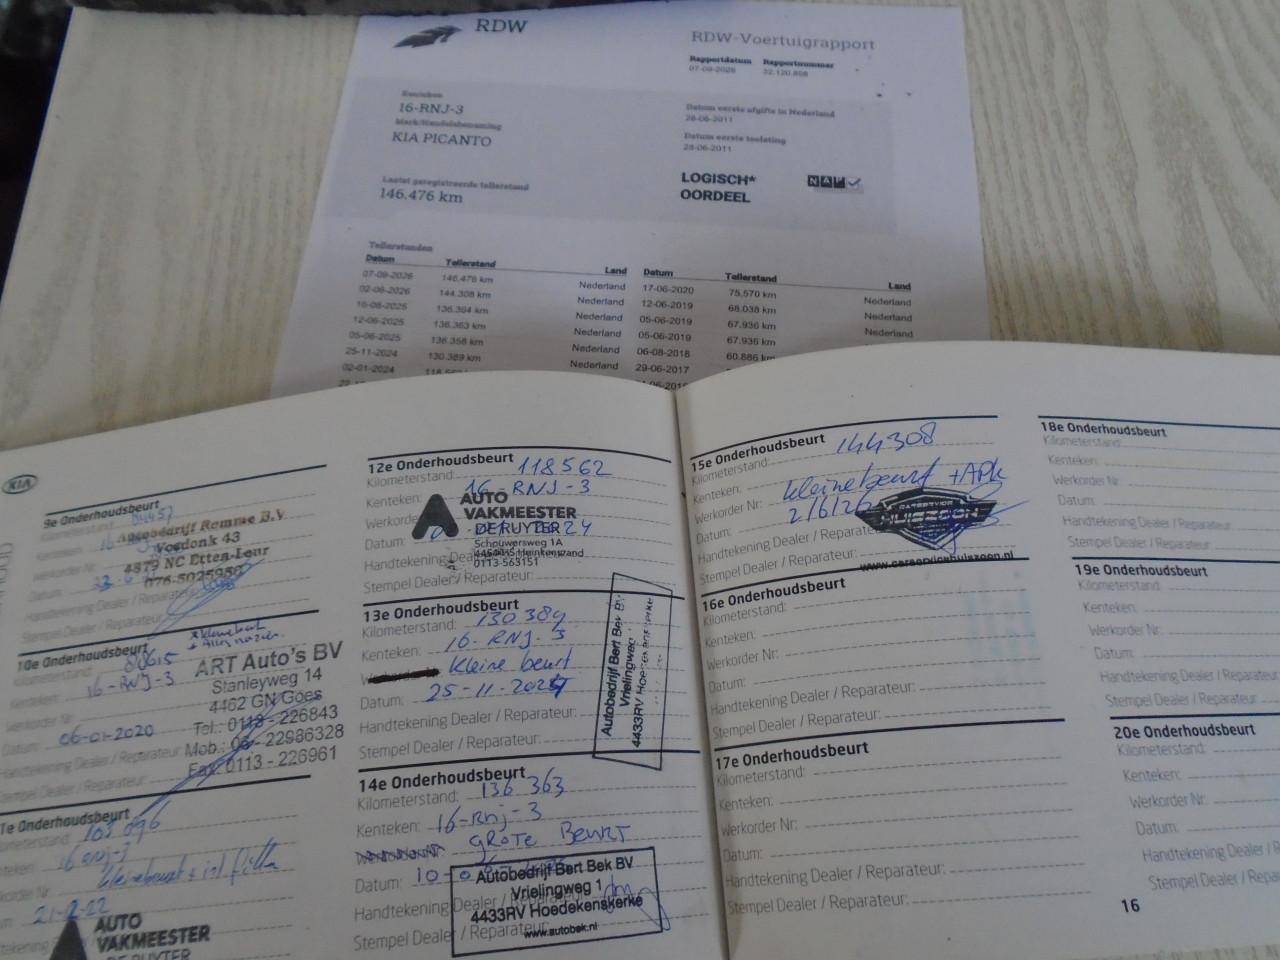 RDW
RDW-Voertuigrapport
Rapportdatum Rapportnummer
07-09-2026 52.120.898
Kenteken
16-RNJ-3
Merk/Handelsbenaming
KIA PICANTO
Datum eerste afgifte in Nederland
28-06-2011
Datum eerste toelating
28-06-2011
Laatst geregistreerde tellerstand
146.476 km
LOGISCH*
OORDEEL
NAP
Tellerstanden
Datum Tellerstand Land Datum Tellerstand Land
07-09-2026 146.476 km Nederland 17-06-2020 75.570 km Nederland
02-06-2026 144.308 km Nederland 12-06-2019 68.038 km Nederland
16-06-2025 136.394 km Nederland 05-06-2019 67.936 km Nederland
12-06-2025 136.363 km Nederland 05-06-2019 67.936 km Nederland
05-06-2025 136.358 km Nederland 06-08-2018 60.886 km
25-11-2024 130.389 km Nederland 29-06-2017
02-01-2024
KIA
9e Onderhoudsbeurt
Autobedrijf Romme B.V.
Vosdonk 43
4879 NC Etten-Leur
076-5025950
Handtekening Dealer / Reparateur:
Stempel Dealer / Reparateur:
10e Onderhoudsbeurt
16-RNJ-3
Werkorder Nr:
Datum: 06-01-2020
Handtekening Dealer / Reparateur
Stempel Dealer / Reparateur:
ART Auto's BV
Stanleyweg 14
4462 GN Goes
Tel.: 0113 - 226843
Mob.: 06 - 22986328
Fax: 0113 - 226961
1e Onderhoudsbeurt
103 096
16 RNJ-3
kleine beurt + int filter
21-2-22
AUTO
VAKMEESTER
DE RUYTER
12e Onderhoudsbeurt
Kilometerstand: 118562
Kenteken: 16-RNJ-3
Datum:
Stempel Dealer / Reparateur:
AUTO
VAKMEESTER
DE RUYTER
Schouwersweg 1A
Heinkenszand
0113-563151
13e Onderhoudsbeurt
Kilometerstand: 130389
Kenteken: 16-RNJ-3
kleine beurt
Datum: 25-11-2024
Handtekening Dealer / Reparateur:
Stempel Dealer / Reparateur:
Autobedrijf Bert Bek BV
Vrielingweg
4433RV Hoedekenskerke
14e Onderhoudsbeurt
Kilometerstand: 136 363
Kenteken: 16-Rnj-3
GROTE BEURT
Datum: 10-0
Handtekening Dealer / Reparateur:
Stempel Dealer / Reparateur:
Autobedrijf Bert Bek BV
Vrielingweg 1
4433RV Hoedekenskerke
www.autobek.nl
15e Onderhoudsbeurt
Kilometerstand: 144308
Kenteken:
Werkorder Nr: kleine beurt + APK
Datum: 2/6/26
Handtekening Dealer / Reparateur:
Stempel Dealer / Reparateur:
www.carservicehuiszoon.nl
16e Onderhoudsbeurt
Kilometerstand:
Kenteken:
Werkorder Nr:
Datum:
Handtekening Dealer / Reparateur:
Stempel Dealer / Reparateur:
17e Onderhoudsbeurt
Kilometerstand:
Kenteken:
Werkorder Nr:
Datum:
Handtekening Dealer / Reparateur:
Stempel Dealer / Reparateur:
18e Onderhoudsbeurt
Kilometerstand:
Kenteken:
Werkorder Nr:
Datum:
Handtekening Dealer / Reparateur
Stempel Dealer / Reparateur:
19e Onderhoudsbeurt
Kilometerstand:
Kenteken:
Werkorder Nr:
Datum:
Handtekening Dealer / Reparateur
Stempel Dealer / Reparateur:
20e Onderhoudsbeurt
Kilometerstand:
Kenteken:
Werkorder Nr:
Datum:
Handtekening Dealer / R
Stempel Dealer / Repara
16